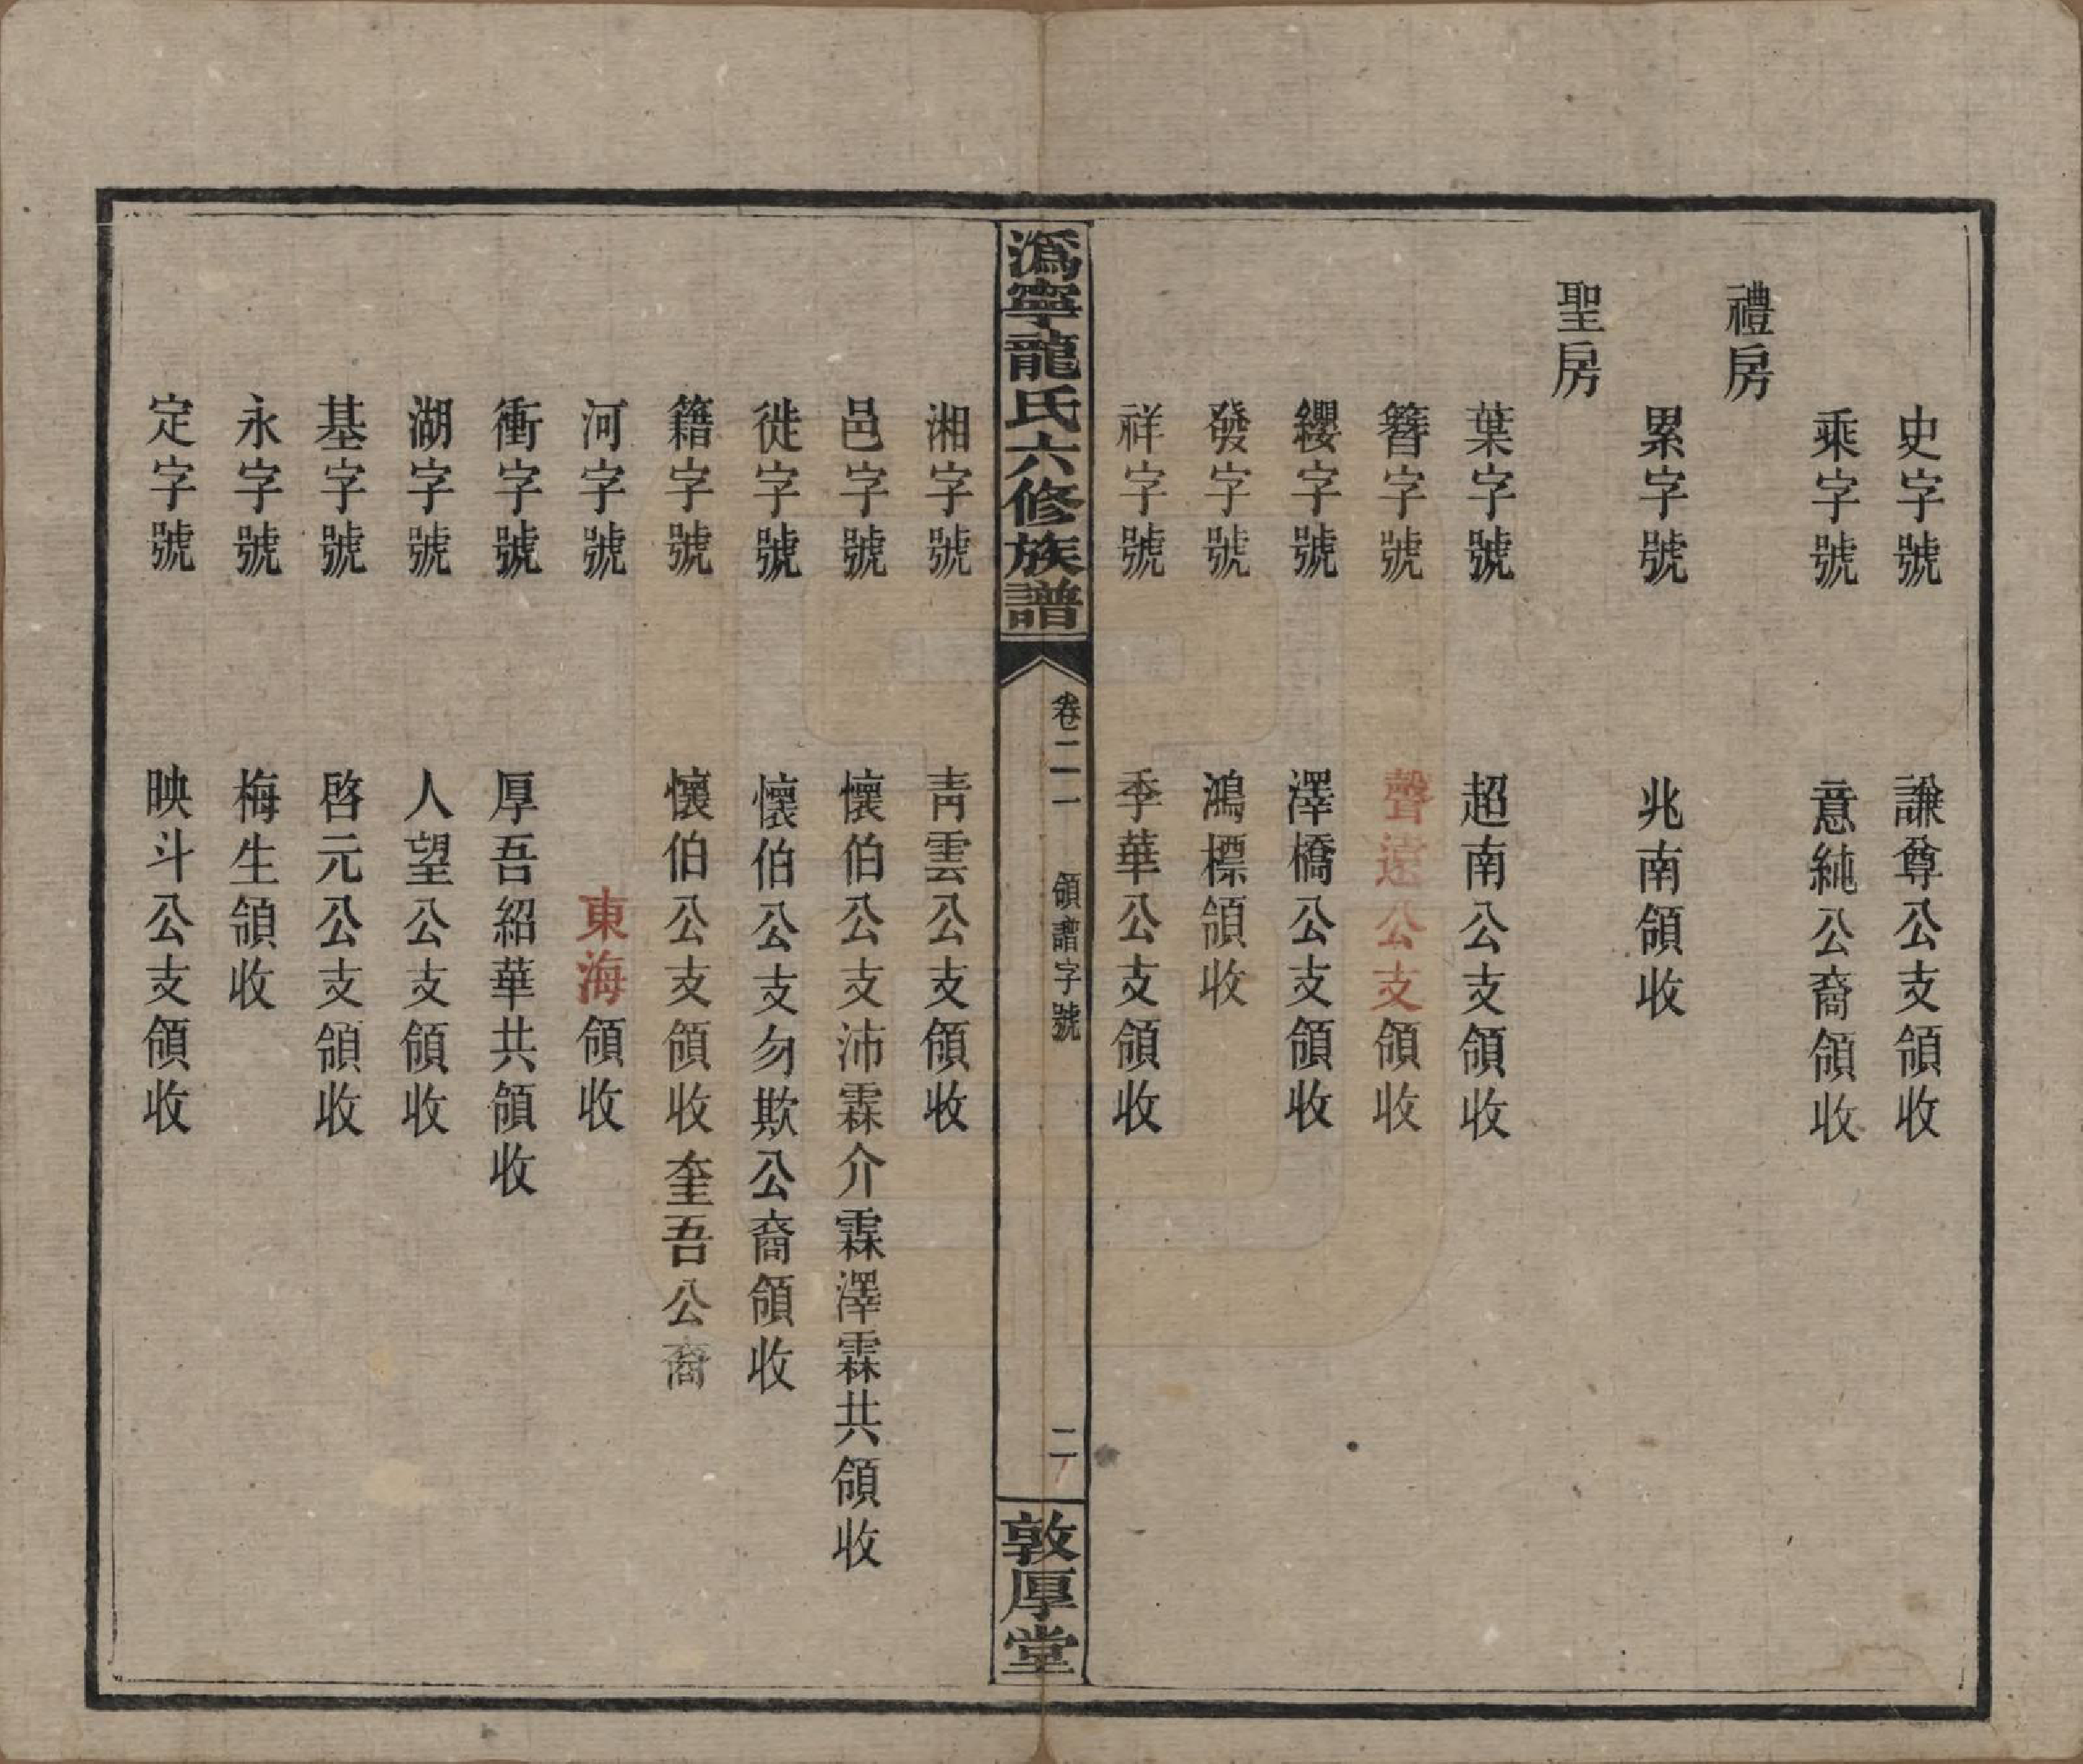 史字號 謙尊公支領收
乘字號 意純公裔領收
禮房
累字號 兆南領收
聖房
葉字號 超南公支領收
簪字號 聲遠公支領收
纓字號 澤橋公支領收
發字號 鴻標領收
祥字號 季華公支領收
溈寧龍氏六修族譜 卷二一 領譜字號 二 敦厚堂
湘字號 青雲公支領收
邑字號 懷伯公支沛霖介霖澤霖共領收
徙字號 懷伯公支勿欺公裔領收
籍字號 懷伯公支領收奎吾公裔
河字號 東海領收
衝字號 厚吾紹華共領收
湖字號 人望公支領收
基字號 啓元公支領收
永字號 梅生領收
定字號 映斗公支領收